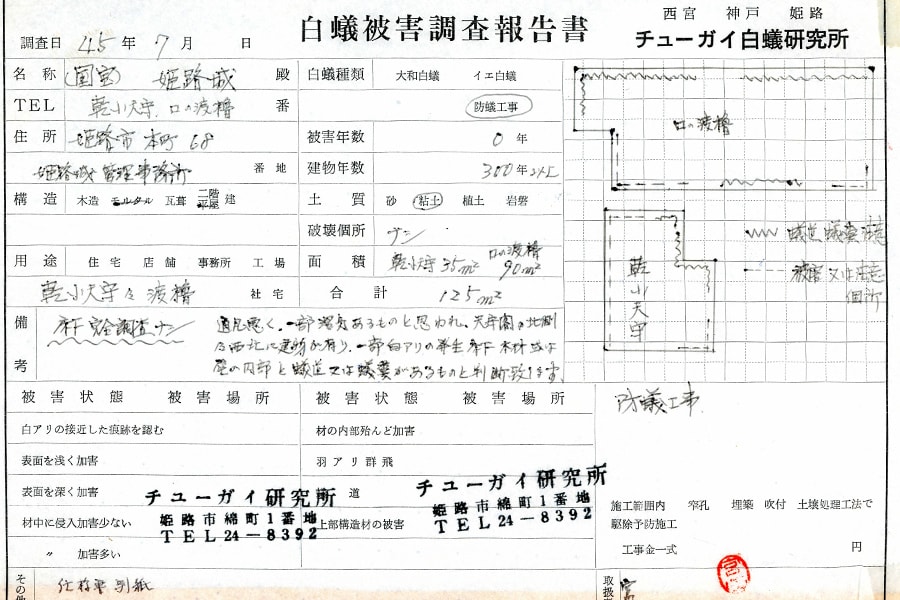 西宮 神戸 姫路
白蟻被害調査報告書
チューガイ白蟻研究所
調査日 45年 7月 日
名称 (国宝) 姫路城 殿
白蟻種類 大和白蟻 イエ白蟻
TEL 乾小天守、口の渡櫓 番
防蟻工事
住所 姫路市 本町 68
被害年数 0年
姫路城管理事務所 番地
建物年数 300年以上
構造 木造 モルタル 瓦葺 二階 平屋 建
土質 砂 粘土 植土 岩磐
破壊個所 ナシ
用途 住宅 店舗 事務所 工場
面積 乾小天守 35m² 口の渡櫓 90m²
乾小天守 渡櫓 社宅
合計 125m²
口の渡櫓
乾小天守
蟻道蟻巣
被害又は
個所
備考 床下完全調査ナシ
通風悪く、一部湿気あるものと思われ、天守閣の北側
及西北に建物が有り、一部白アリの発生 床下木材或は
壁の内部と蟻道又は蟻巣があるものと判断致します。
被害状態 被害場所 被害状態 被害場所
防蟻工事
白アリの接近した痕跡を認む
材の内部殆んど加害
表面を浅く加害
羽アリ群飛
表面を深く加害
道
チューガイ研究所
姫路市綿町1番地
TEL24-8392
チューガイ研究所
姫路市綿町1番地
TEL24-8392
材中に侵入加害少ない
上部構造材の被害
〃 加害多い
施工範囲内 穿孔 埋築 吹付 土壌処理工法で
駆除予防施工
工事金一式 円
その他 仕様書別紙
取扱